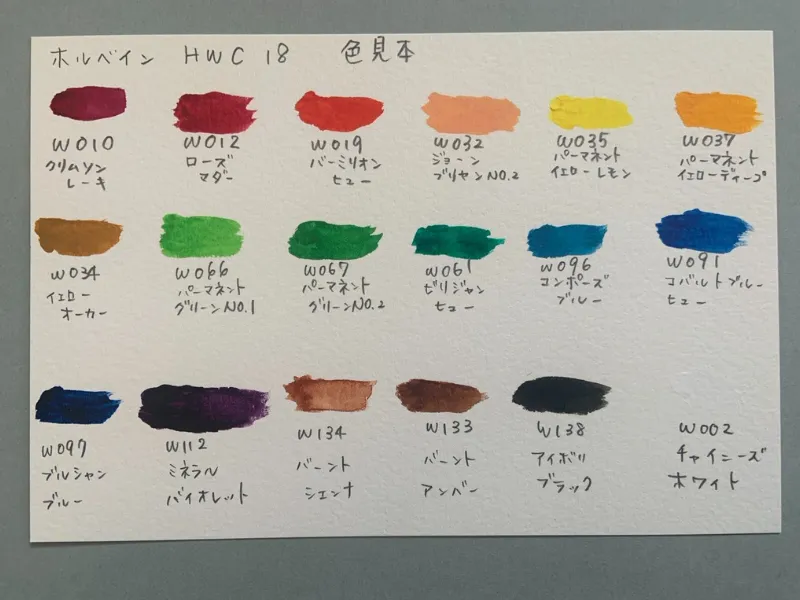 ホルベイン HWC 18 色見本
W010
クリムソン
レーキ
W012
ローズ
マダー
W019
バーミリオン
ヒュー
W032
ジョーン
ブリヤンNO.2
W035
パーマネント
イエローレモン
W037
パーマネント
イエローディープ
W034
イエロー
オーカー
W066
パーマネント
グリーンNO.1
W067
パーマネント
グリーンNO.2
W061
ビリジャン
ヒュー
W096
コンポーズ
ブルー
W091
コバルトブルー
ヒュー
W097
プルシャン
ブルー
W112
ミネラル
バイオレット
W134
バーント
シエンナ
W133
バーント
アンバー
W138
アイボリ
ブラック
W002
チャイニーズ
ホワイト